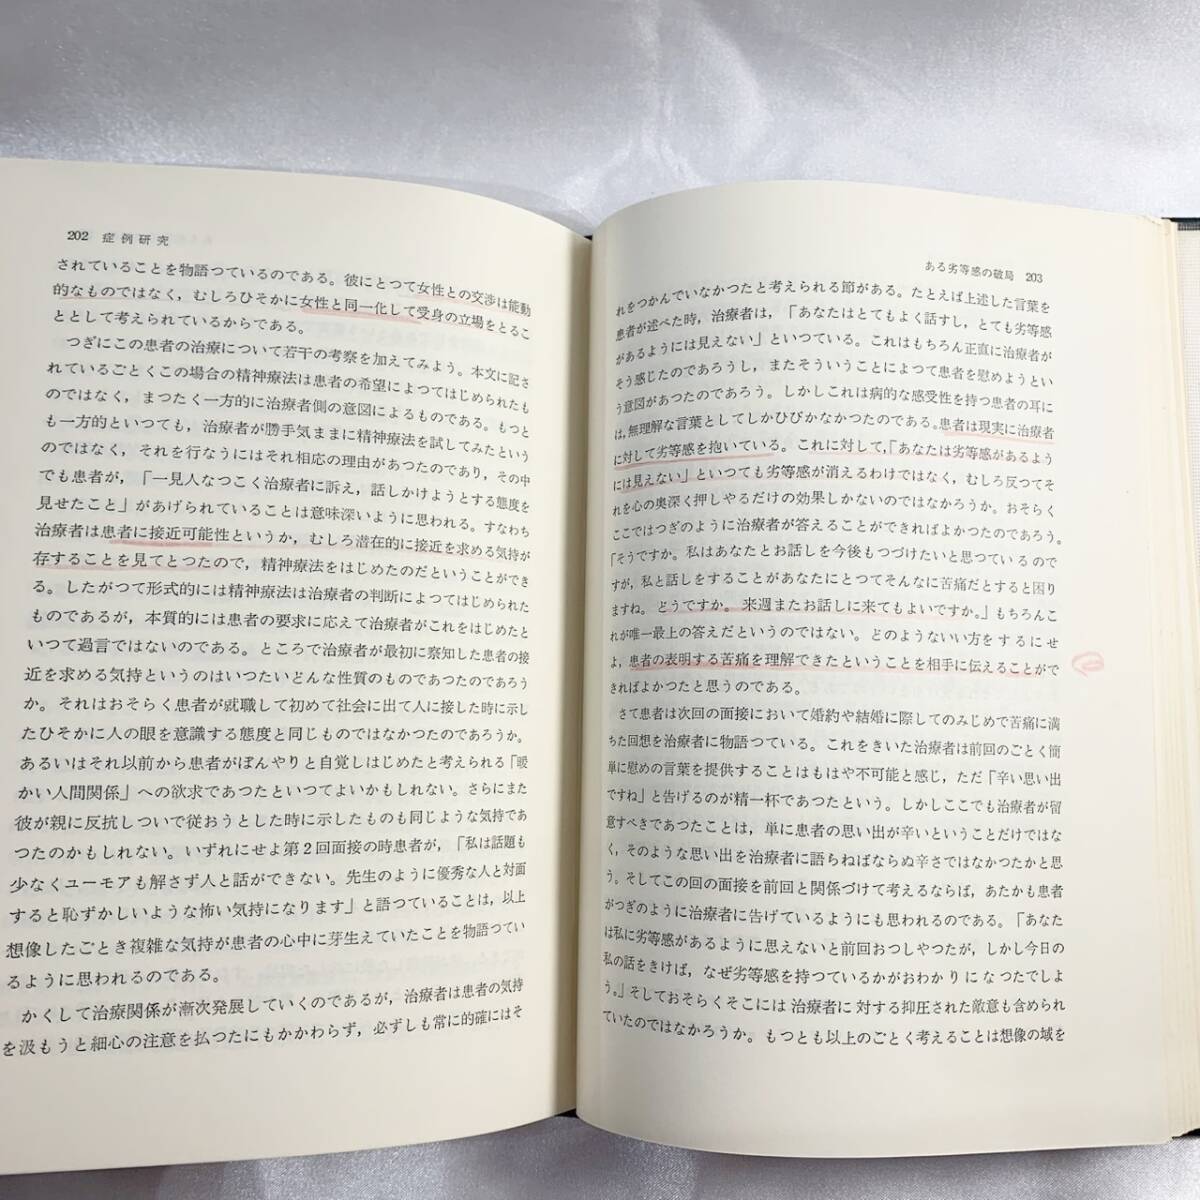 202 症例研究
されていることを物語つているのである。彼にとつて女性との交渉は能動
的なものではなく，むしろひそかに女性と同一化して受身の立場をとるこ
ととして考えられているからである。
つぎにこの患者の治療について若干の考察を加えてみよう。本文に記さ
れているごとくこの場合の精神療法は患者の希望によつてはじめられたも
のではなく，まつたく一方的に治療者側の意図によるものである。もつと
も一方的といつても，治療者が勝手気ままに精神療法を試してみたという
のではなく，それを行なうにはそれ相応の理由があつたのであり，その中
でも患者が，「一見人なつこく治療者に訴え，話しかけようとする態度を
見せたこと」があげられていることは意味深いように思われる。すなわち
治療者は患者に接近可能性というか，むしろ潜在的に接近を求める気持が
存することを見てとつたので，精神療法をはじめたのだということができ
る。したがつて形式的には精神療法は治療者の判断によつてはじめられた
ものであるが，本質的には患者の要求に応えて治療者がこれをはじめたと
いつて過言ではないのである。ところで治療者が最初に察知した患者の接
近を求める気持というのはいつたいどんな性質のものであつたのであろう
か。それはおそらく患者が就職して初めて社会に出て人に接した時に示し
たひそかに人の眼を意識する態度と同じものではなかつたのであろうか。
あるいはそれ以前から患者がぼんやりと自覚しはじめたと考えられる「暖
かい人間関係」への欲求であつたといつてよいかもしれない。さらにまた
彼が親に反抗しついで従おうとした時に示したものも同じような気持であ
つたのかもしれない。いずれにせよ第2回面接の時患者が，「私は話題も
少なくユーモアも解さず人と話ができない。先生のように優秀な人と対面
すると恥ずかしいような怖い気持になります」と語つていることは，以上
想像したごとき複雑な気持が患者の心中に芽生えていたことを物語つてい
るように思われるのである。
かくして治療関係が漸次発展していくのであるが，治療者は患者の気持
を汲もうと細心の注意を払つたにもかかわらず，必ずしも常に的確にはそ
ある劣等感の破局 203
れをつかんでいなかつたと考えられる節がある。たとえば上述した言葉を
患者が述べた時，治療者は，「あなたはとてもよく話すし，とても劣等感
があるようには見えない」といつている。これはもちろん正直に治療者が
そう感じたのであろうし，またそういうことによつて患者を慰めようとい
う意図があつたのであろう。しかしこれは病的な感受性を持つ患者の耳に
は，無理解な言葉としてしかひびかなかつたのである。患者は現実に治療者
に対して劣等感を抱いている。これに対して，「あなたは劣等感があるよう
には見えない」といつても劣等感が消えるわけではなく，むしろ反つてそ
れを心の奥深く押しやるだけの効果しかないのではなかろうか。おそらく
ここではつぎのように治療者が答えることができればよかつたのであろう。
「そうですか。私はあなたとお話しを今後もつづけたいと思つているので
すが，私と話しをすることがあなたにとつてそんなに苦痛だとすると困り
ますね。どうですか。来週またお話しに来てもよいですか。」もちろんこ
れが唯一最上の答えだというのではない。どのようないい方をするにせ
よ，患者の表明する苦痛を理解できたということを相手に伝えることがで
きればよかつたと思うのである。
さて患者は次回の面接において婚約や結婚に際してのみじめで苦痛に満
ちた回想を治療者に物語つている。これをきいた治療者は前回のごとく簡
単に慰めの言葉を提供することはもはや不可能と感じ，ただ「辛い思い出
ですね」と告げるのが精一杯であつたという。しかしここでも治療者が留
意すべきであつたことは，単に患者の思い出が辛いということだけではな
く，そのような思い出を治療者に語らねばならぬ辛さではなかつたかと思
う。そしてこの回の面接を前回と関係づけて考えるならば，あたかも患者
がつぎのように治療者に告げているようにも思われるのである。「あなた
は私に劣等感があるように思えないと前回おつしやつたが，しかし今日の
私の話をきけば，なぜ劣等感を持つているかがおわかりになつたでしよ
う。」そしておそらくそこには治療者に対する抑圧された敵意も含められ
ていたのではなかろうか。もつとも以上のごとく考えることは想像の域を